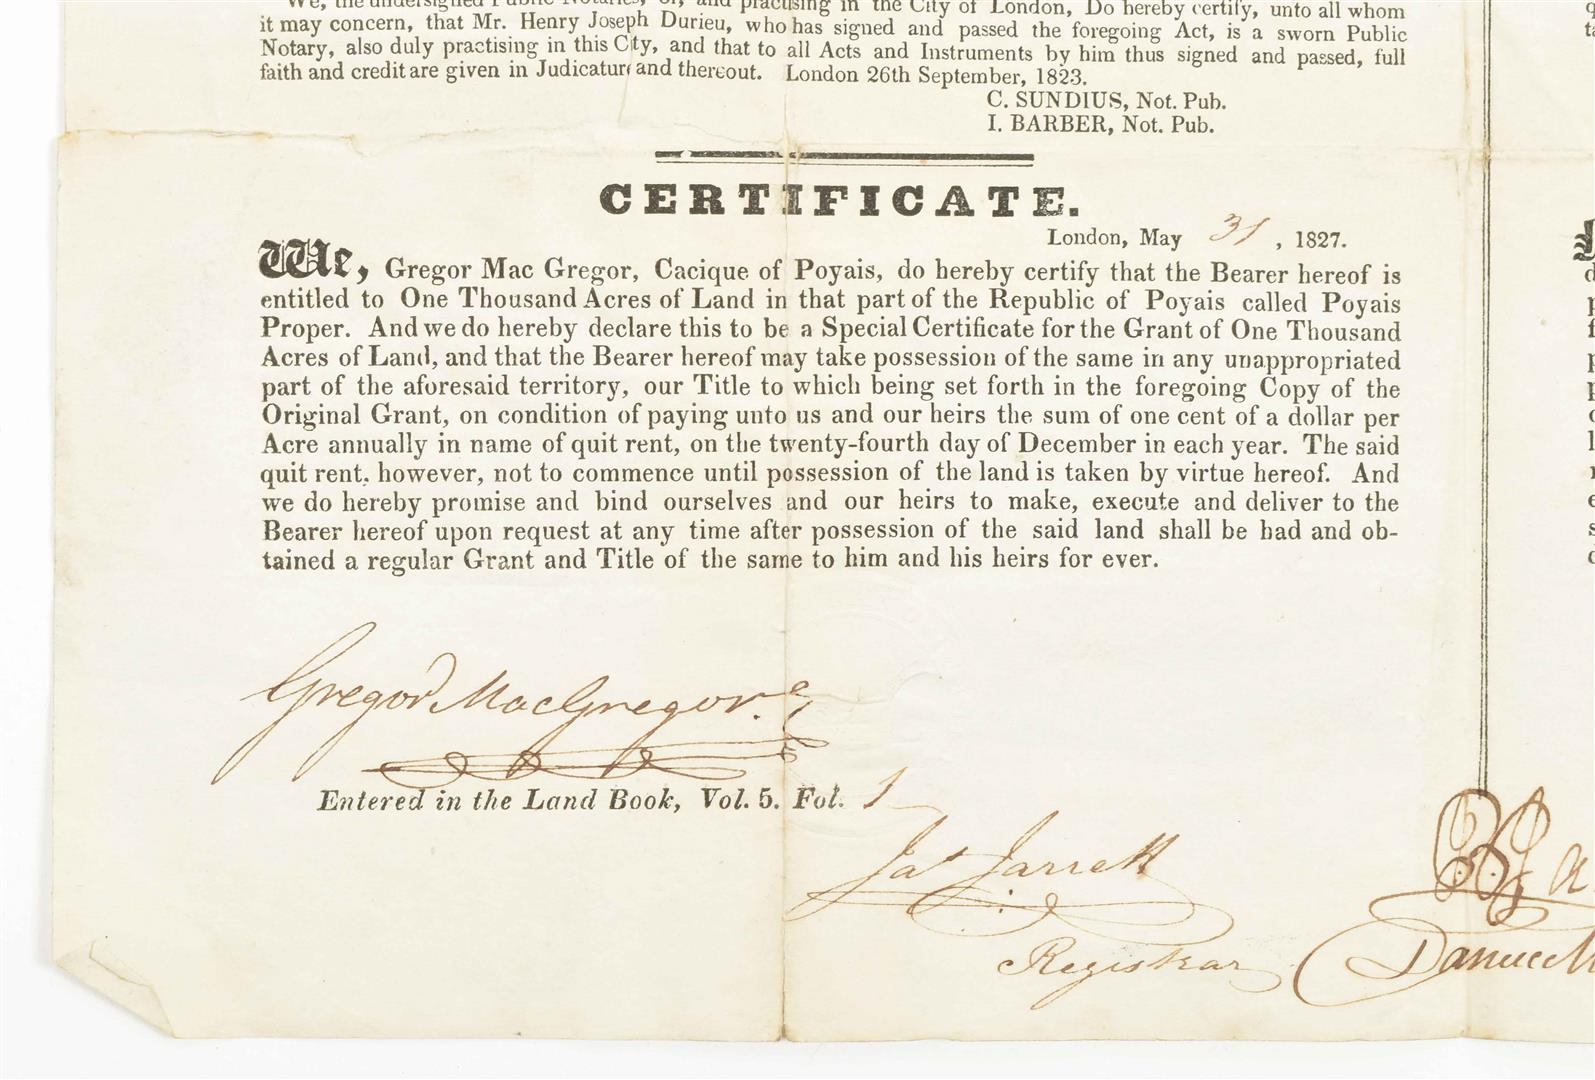 We, the undersigned Public Notaries, of, and practising in the City of London, Do hereby certify, unto all whom
it may concern, that Mr. Henry Joseph Durieu, who has signed and passed the foregoing Act, is a sworn Public
Notary, also duly practising in this City, and that to all Acts and Instruments by him thus signed and passed, full
faith and credit are given in Judicature and thereout. London 26th September, 1823.
C. SUNDIUS, Not. Pub.
I. BARBER, Not. Pub.
CERTIFICATE.
London, May 31, 1827.
We, Gregor Mac Gregor, Cacique of Poyais, do hereby certify that the Bearer hereof is
entitled to One Thousand Acres of Land in that part of the Republic of Poyais called Poyais
Proper. And we do hereby declare this to be a Special Certificate for the Grant of One Thousand
Acres of Land, and that the Bearer hereof may take possession of the same in any unappropriated
part of the aforesaid territory, our Title to which being set forth in the foregoing Copy of the
Original Grant, on condition of paying unto us and our heirs the sum of one cent of a dollar per
Acre annually in name of quit rent, on the twenty-fourth day of December in each year. The said
quit rent, however, not to commence until possession of the land is taken by virtue hereof. And
we do hereby promise and bind ourselves and our heirs to make, execute and deliver to the
Bearer hereof upon request at any time after possession of the said land shall be had and ob-
tained a regular Grant and Title of the same to him and his heirs for ever.
Gregor MacGregor.
Entered in the Land Book, Vol. 5. Fol. 1
Jas Jarrett
Registrar